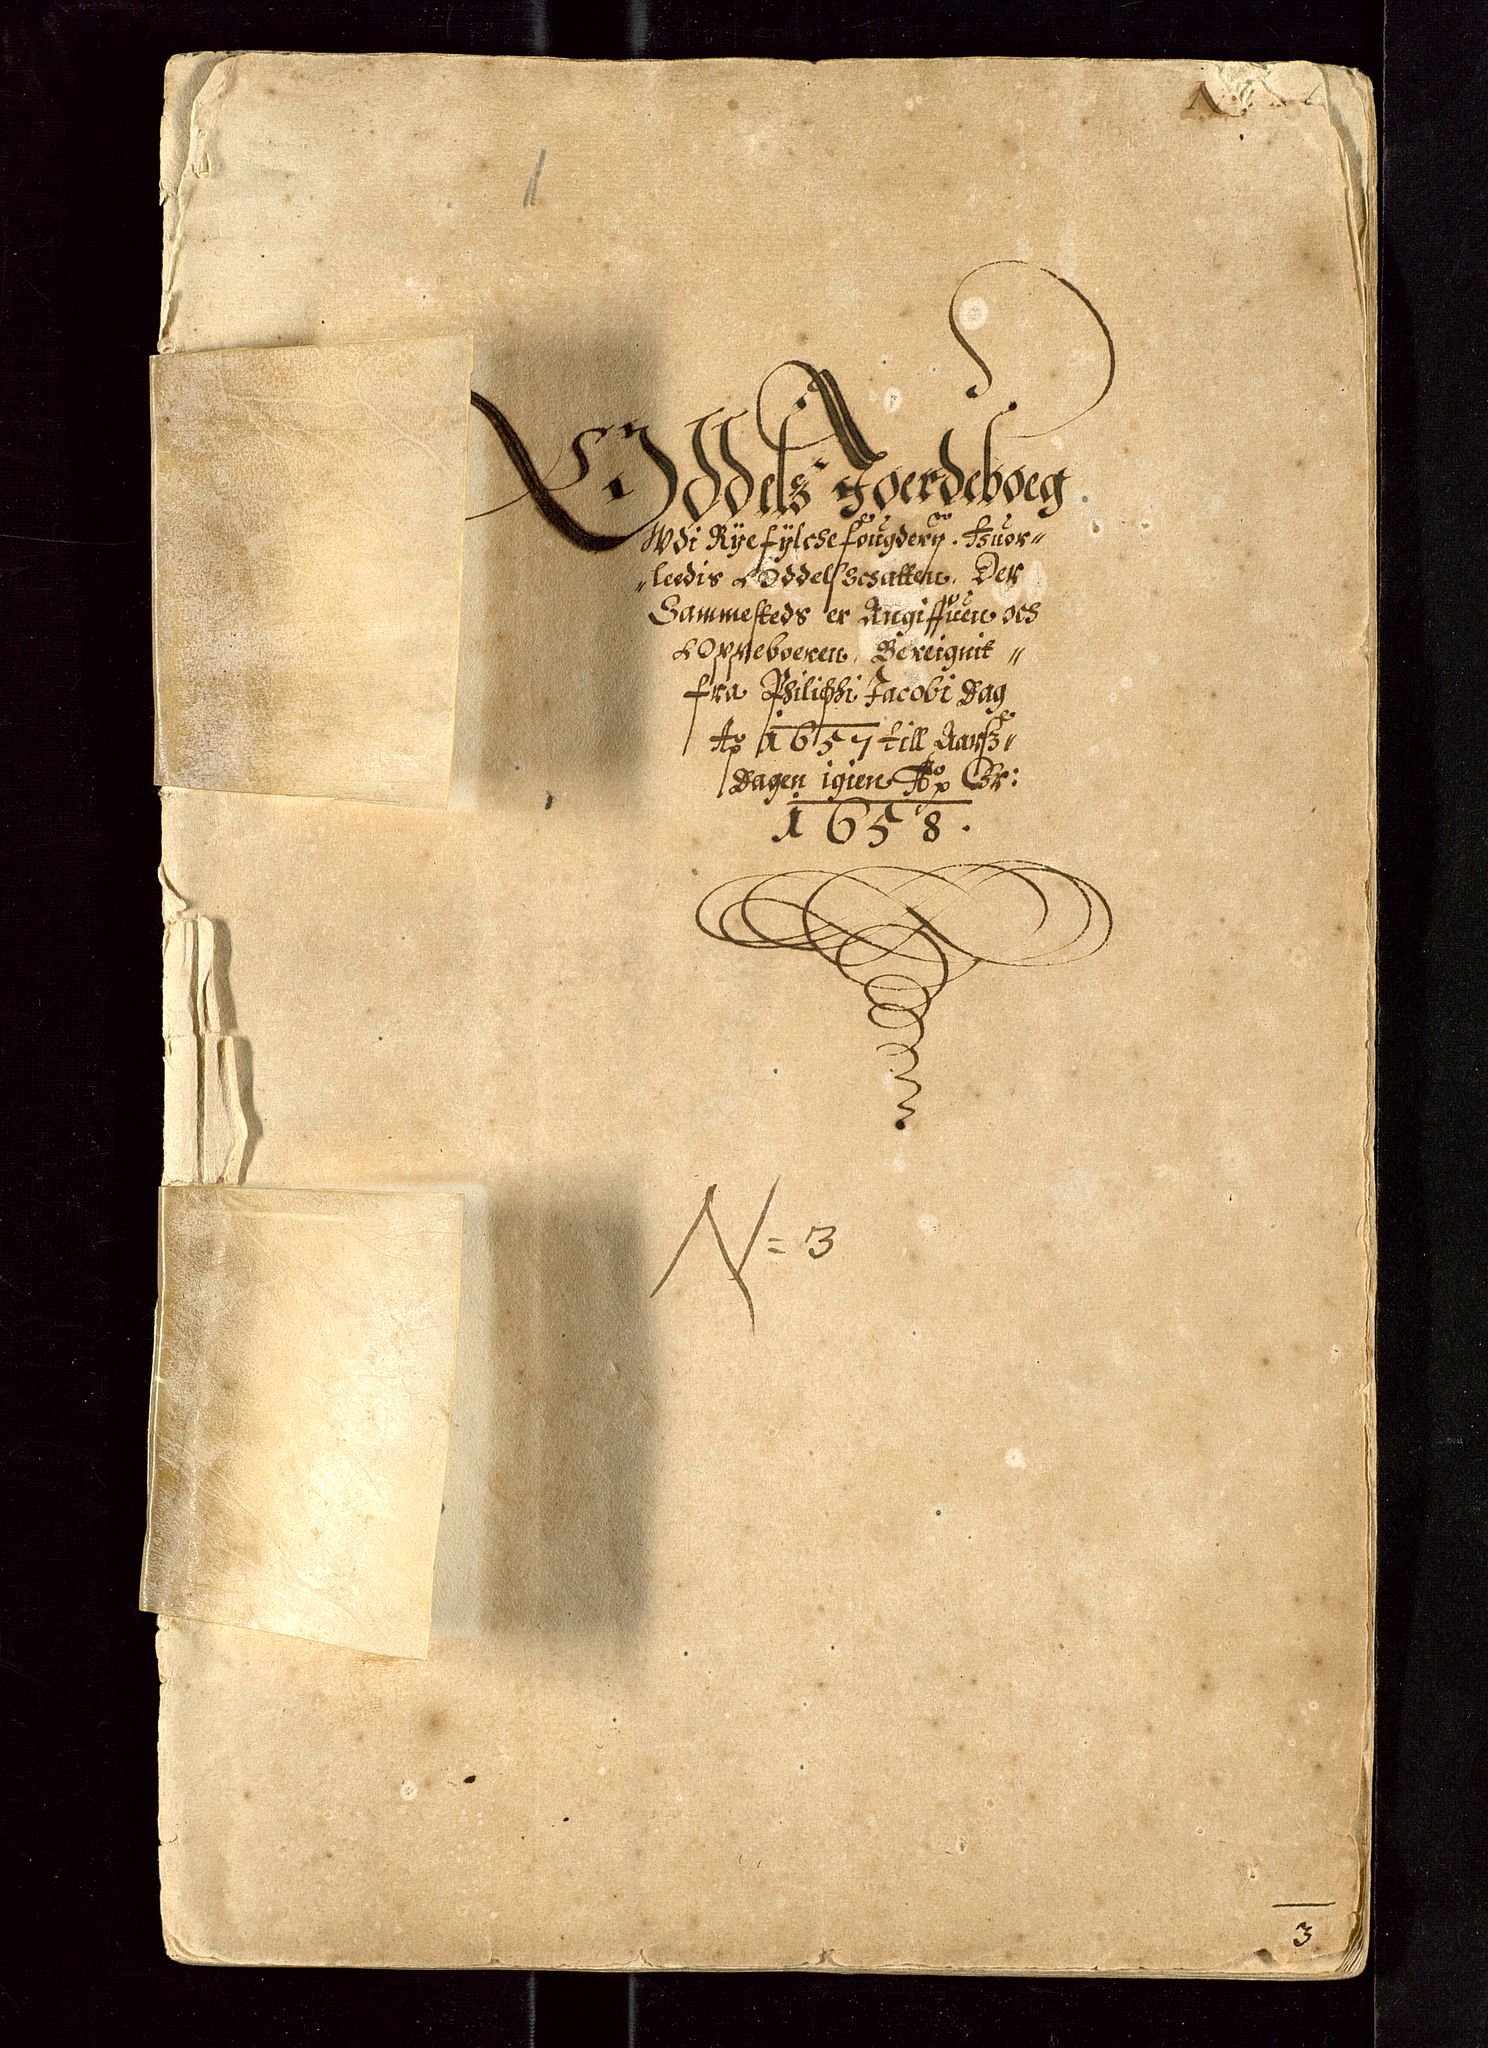 1
Oddels Joerdeboeg
Wdi Ryefylche fougdery. Huor=
=leedis Oddelschatten. Der
Sammesteds er Angiffuen och
Oppeboeren. Bereignit =
fra Philippi Jacobi Dag
Ao 1657 till Aarsz
Dagen igien Ao
1658.
N=3
3